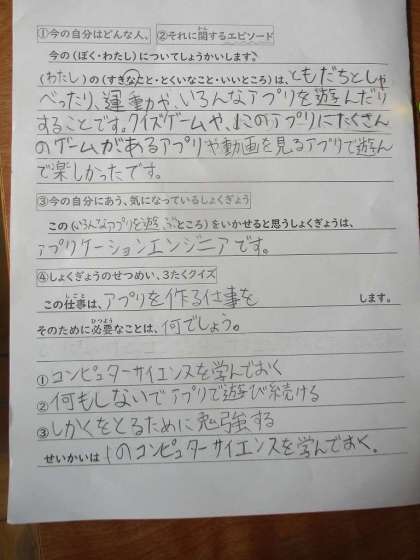 ①今の自分はどんな人、 ②それに関するエピソード
今の（ぼく・わたし）についてしょうかいします。
（わたし）の（すきなこと・とくいなこと・いいところ）は、ともだちとしゃ
べったり、運動や、いろんなアプリを遊んだり
することです。クイズゲームや、1このアプリにたくさん
のゲームがあるアプリや動画を見るアプリで遊ん
で楽しかったです。
③今の自分にあう、気になっているしょくぎょう
この（いろんなアプリを遊ぶところ）をいかせると思うしょくぎょうは、
アプリケーションエンジニアです。
④しょくぎょうのせつめい、3たくクイズ
この仕事は、アプリを作る仕事を します。
そのために必要なことは、何でしょう。
①コンピュターサイエンスを学んでおく
②何もしないでアプリで遊び続ける
③しかくをとるために勉強する
せいかいは1のコンピュターサイエンスを学んでおく。